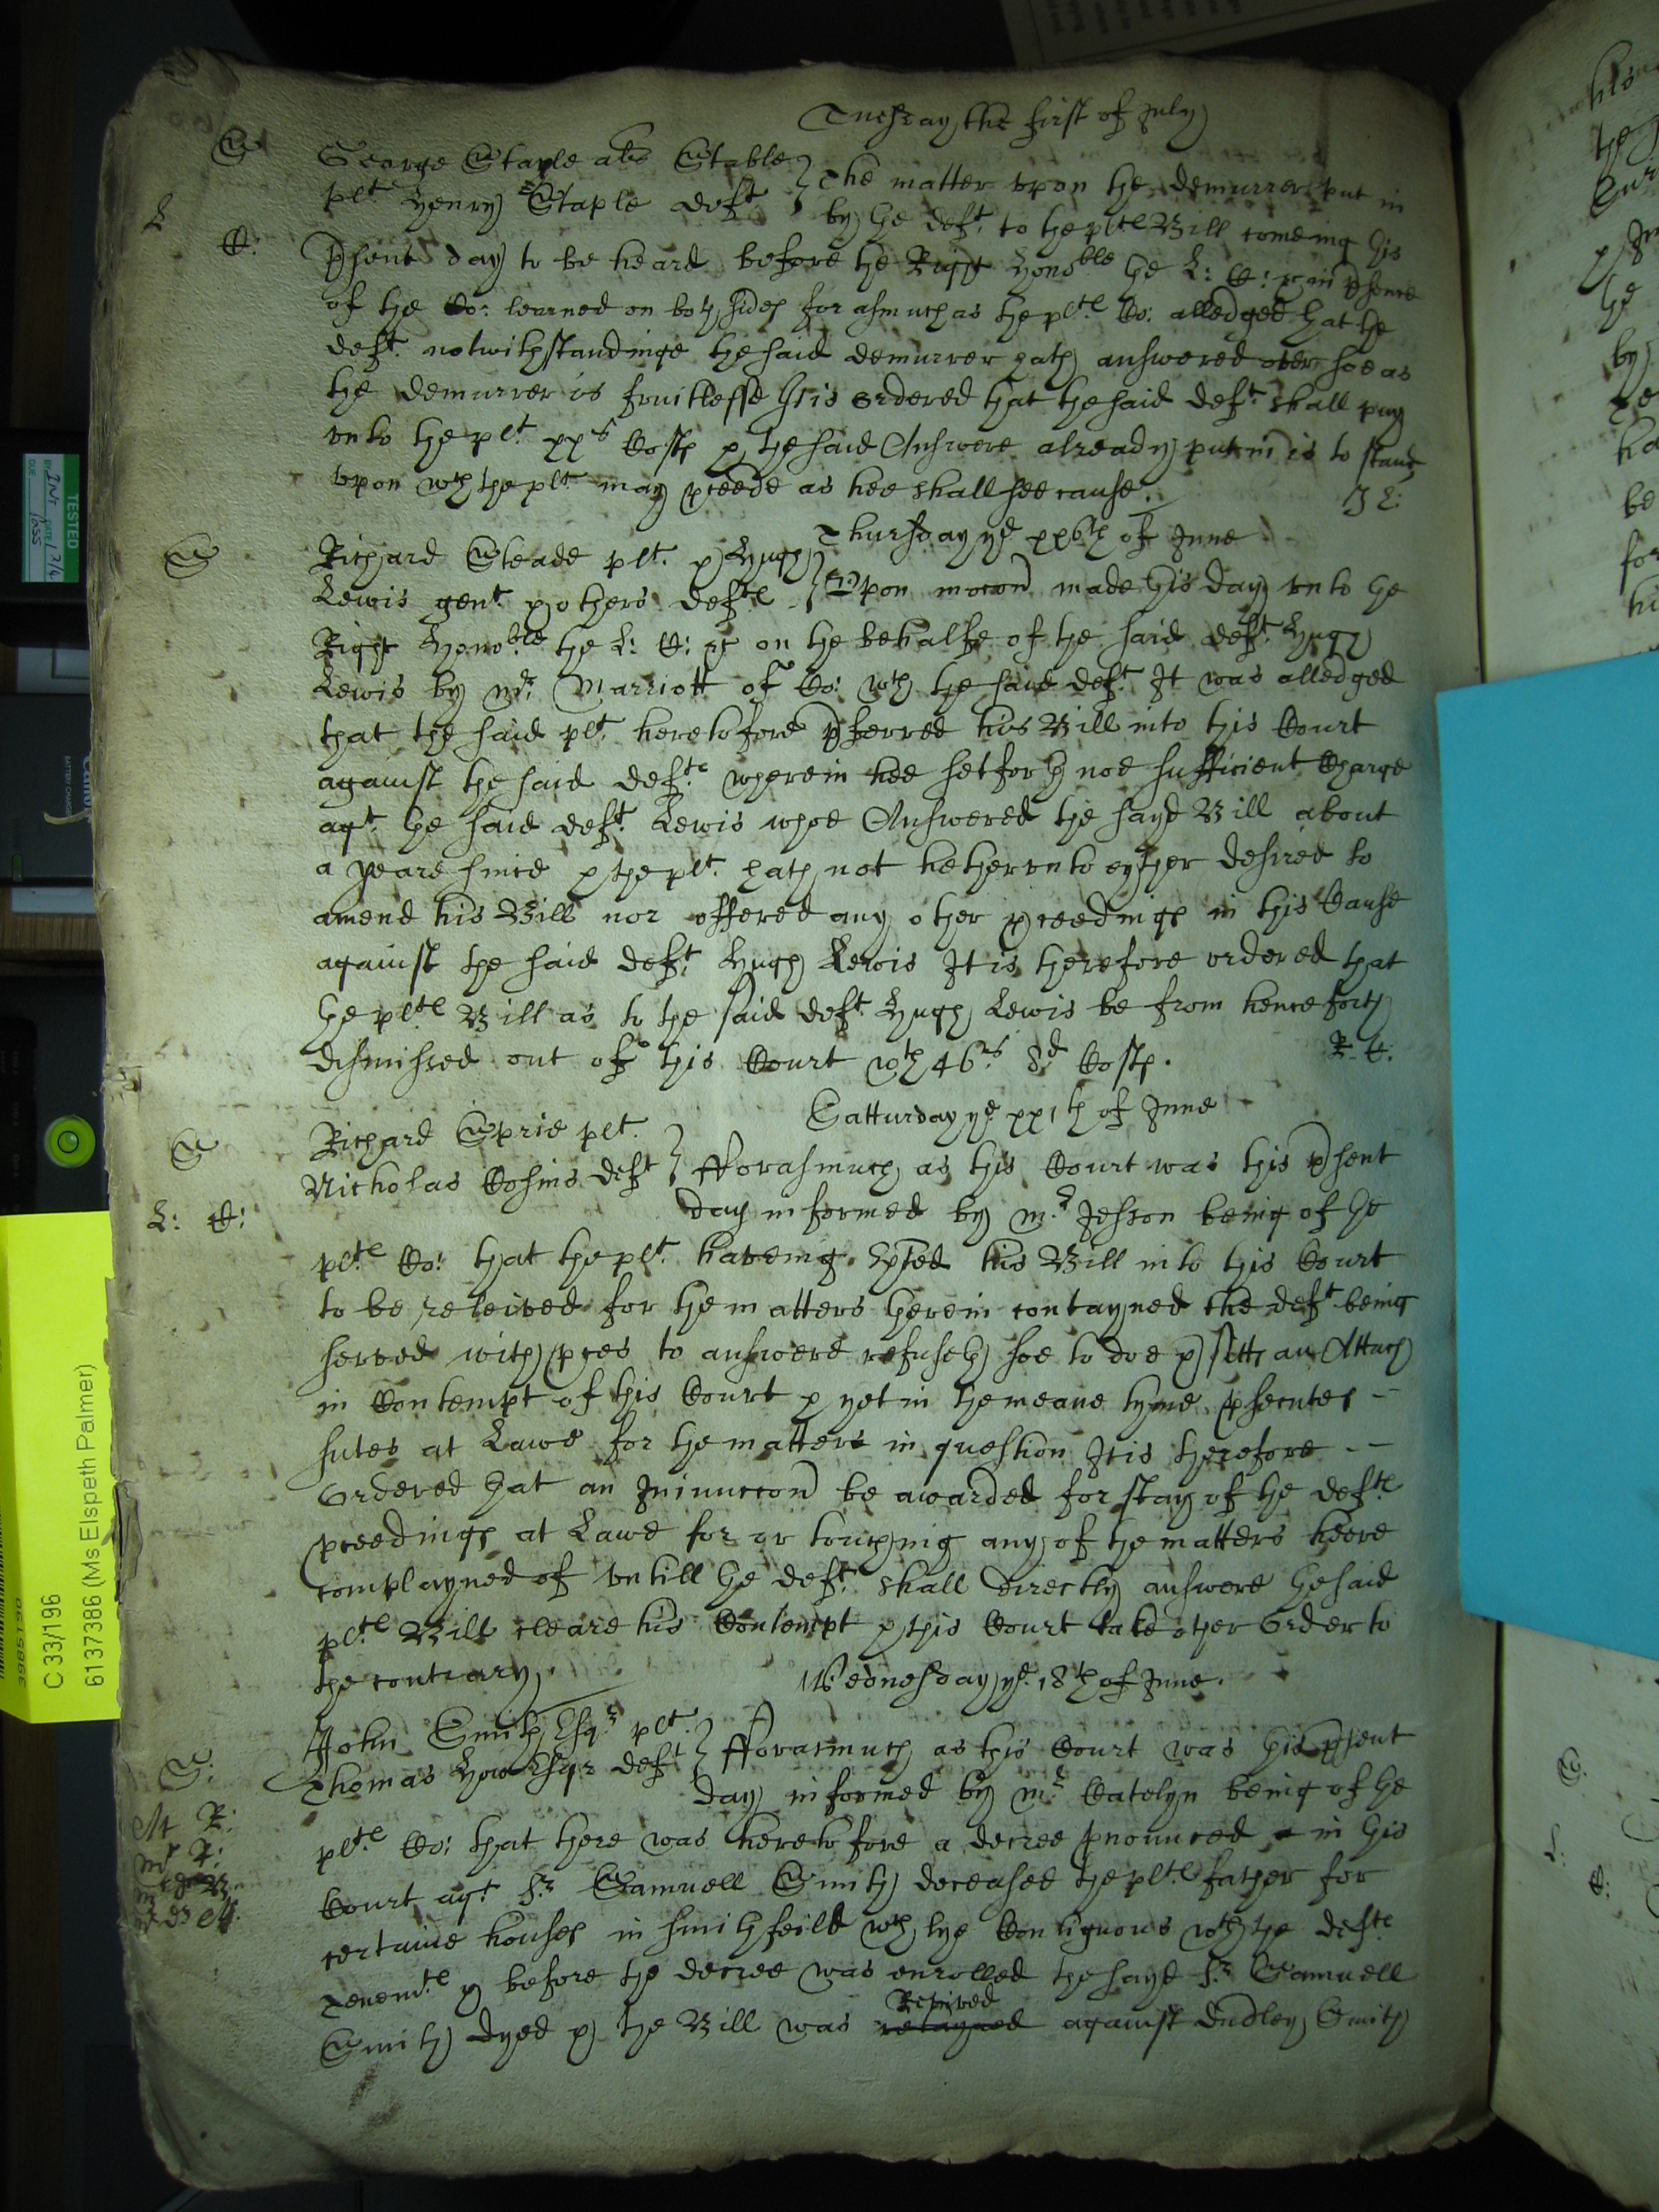 Tuesday the first of July
S George Staple als Stable
plt Henry Staple deft } The matter vpon the demurrer put in
L by the deft. to the pltes Bill comeing this
C: psent day to be heard before the Right Honoble the L: C: & in psence
of the Co: learned on both sides for asmuch as the pltes Co: alledged that the
deft. notwithstandinge the said demurrer hath answered over soe as
the demurrer is fruitlesse It is Ordered that the said deft. shall pay
vnto the plt. xxs Costs & the said Answere already put in is to stand
vpon wch the plt may pceede as hee shall see cause.
Thursday ye xx6th of June
S Richard Steade plt. & Hugh
Lewis gent. & others deftes } Vpon mocon made this day vnto the
Right Honoble the L: C: & on the behalfe of the said deft. Hugh
Lewis by Mr. Marriott of Co: wth the said deft. It was alledged
that the said plt. heretofore pferred his Bill into this Court
against the said deftes wherein hee setforth noe sufficient Charge
agt. the said deft. Lewis whoe Answered the sayd Bill about
a yeare since & the plt. hath not hethervnto eyther desired to
amend his Bill nor offered any other pceedings in this Cause
against the said deft. Hugh Lewis It is therefore ordered that
the pltes Bill as to the said deft. Hugh Lewis be from henceforth
dismissed out of this Court wth 46s. 8d Costs.
R. C:
Satturday ye xxith of June
S Richard Sprie plt.
Nicholas Cosins deft } fforasmuch as this Court was this psent
L: C: day informed by Mr. Jesson being of the
pltes Co: that the plt. haveing exhted his Bill into this Court
to be releived for the matters therein contayned the deft being
served with pces to answere refuseth soe to doe & sitts an Attach
in Contempt of this Court & yet in the meane tyme psecutes
sutes at Lawe for the matters in question It is therefore
Ordered that an Iniunccon be awarded for stay of the deftes
pceedings at Lawe for or touching any of the matters heere
complayned of vntill the deft. shall directly answere the said
pltes Bill cleare his Contempt & this Court take other Order to
the contrary.
Wednesday ye. 18th of June.
S: John Smith Esqr plt.
Thomas How Esqr deft } fforasmuch as this Court was this psent
day informed by Mr. Catelyn being of the
pltes Co: that there was heretofore a decree pnounced in this
Court agt Sr Samuell Smith deceased the pltes father for
certaine houses in Smithfeild wch lye Contiguous wth the deftes
Tenemtes & before the decree was enrolled the sayd Sr Samuell
Revived
Smith dyed & the Bill was retayned against Dudley Smith
C 33/196
6137386 (Ms Elspeth Palmer)
TESTED